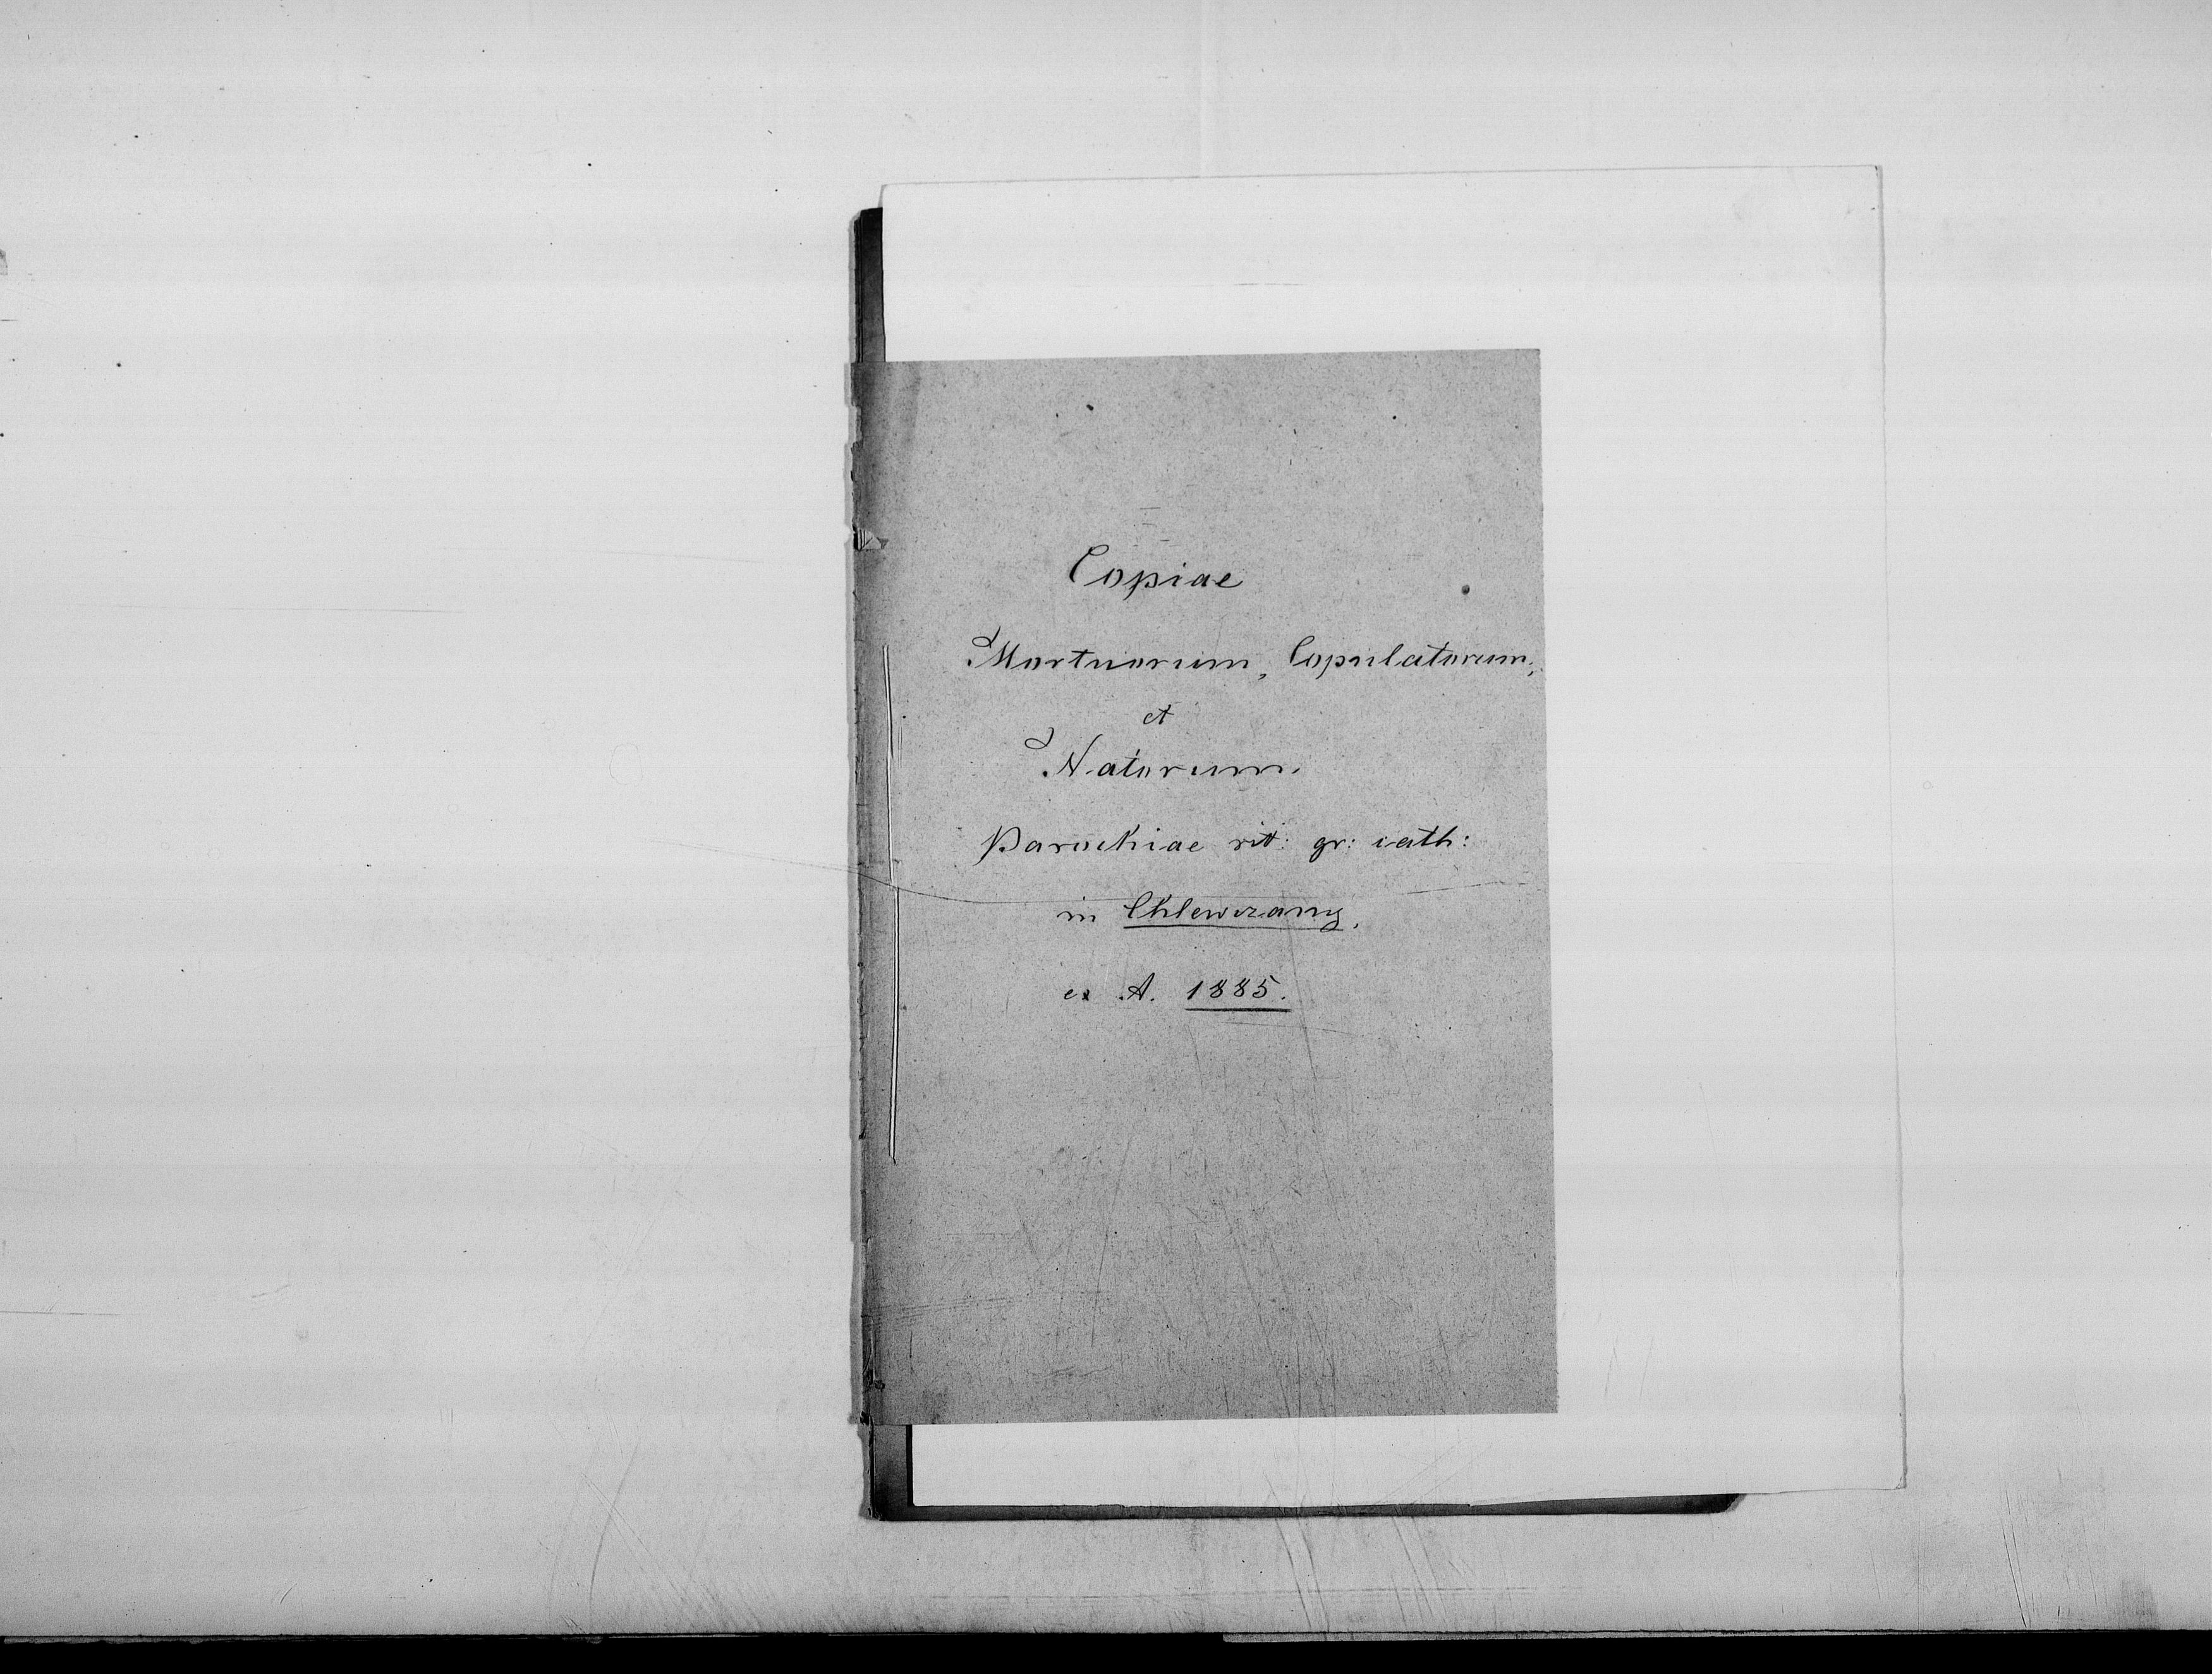 Copiae
Mortuorum, Copulatorum,
et
Natorum.
Parochiae rit: gr: cath:
in Chlewczany.
ex A. 1885.